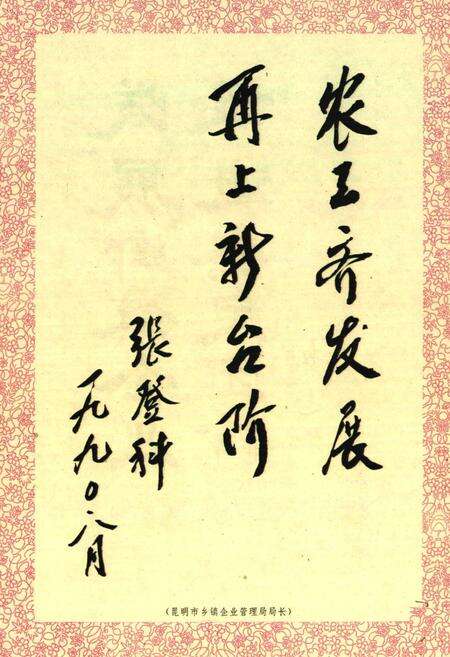 农工齐发展
再上新台阶
張登科
一九九〇.八月
(昆明市乡镇企业管理局局长)